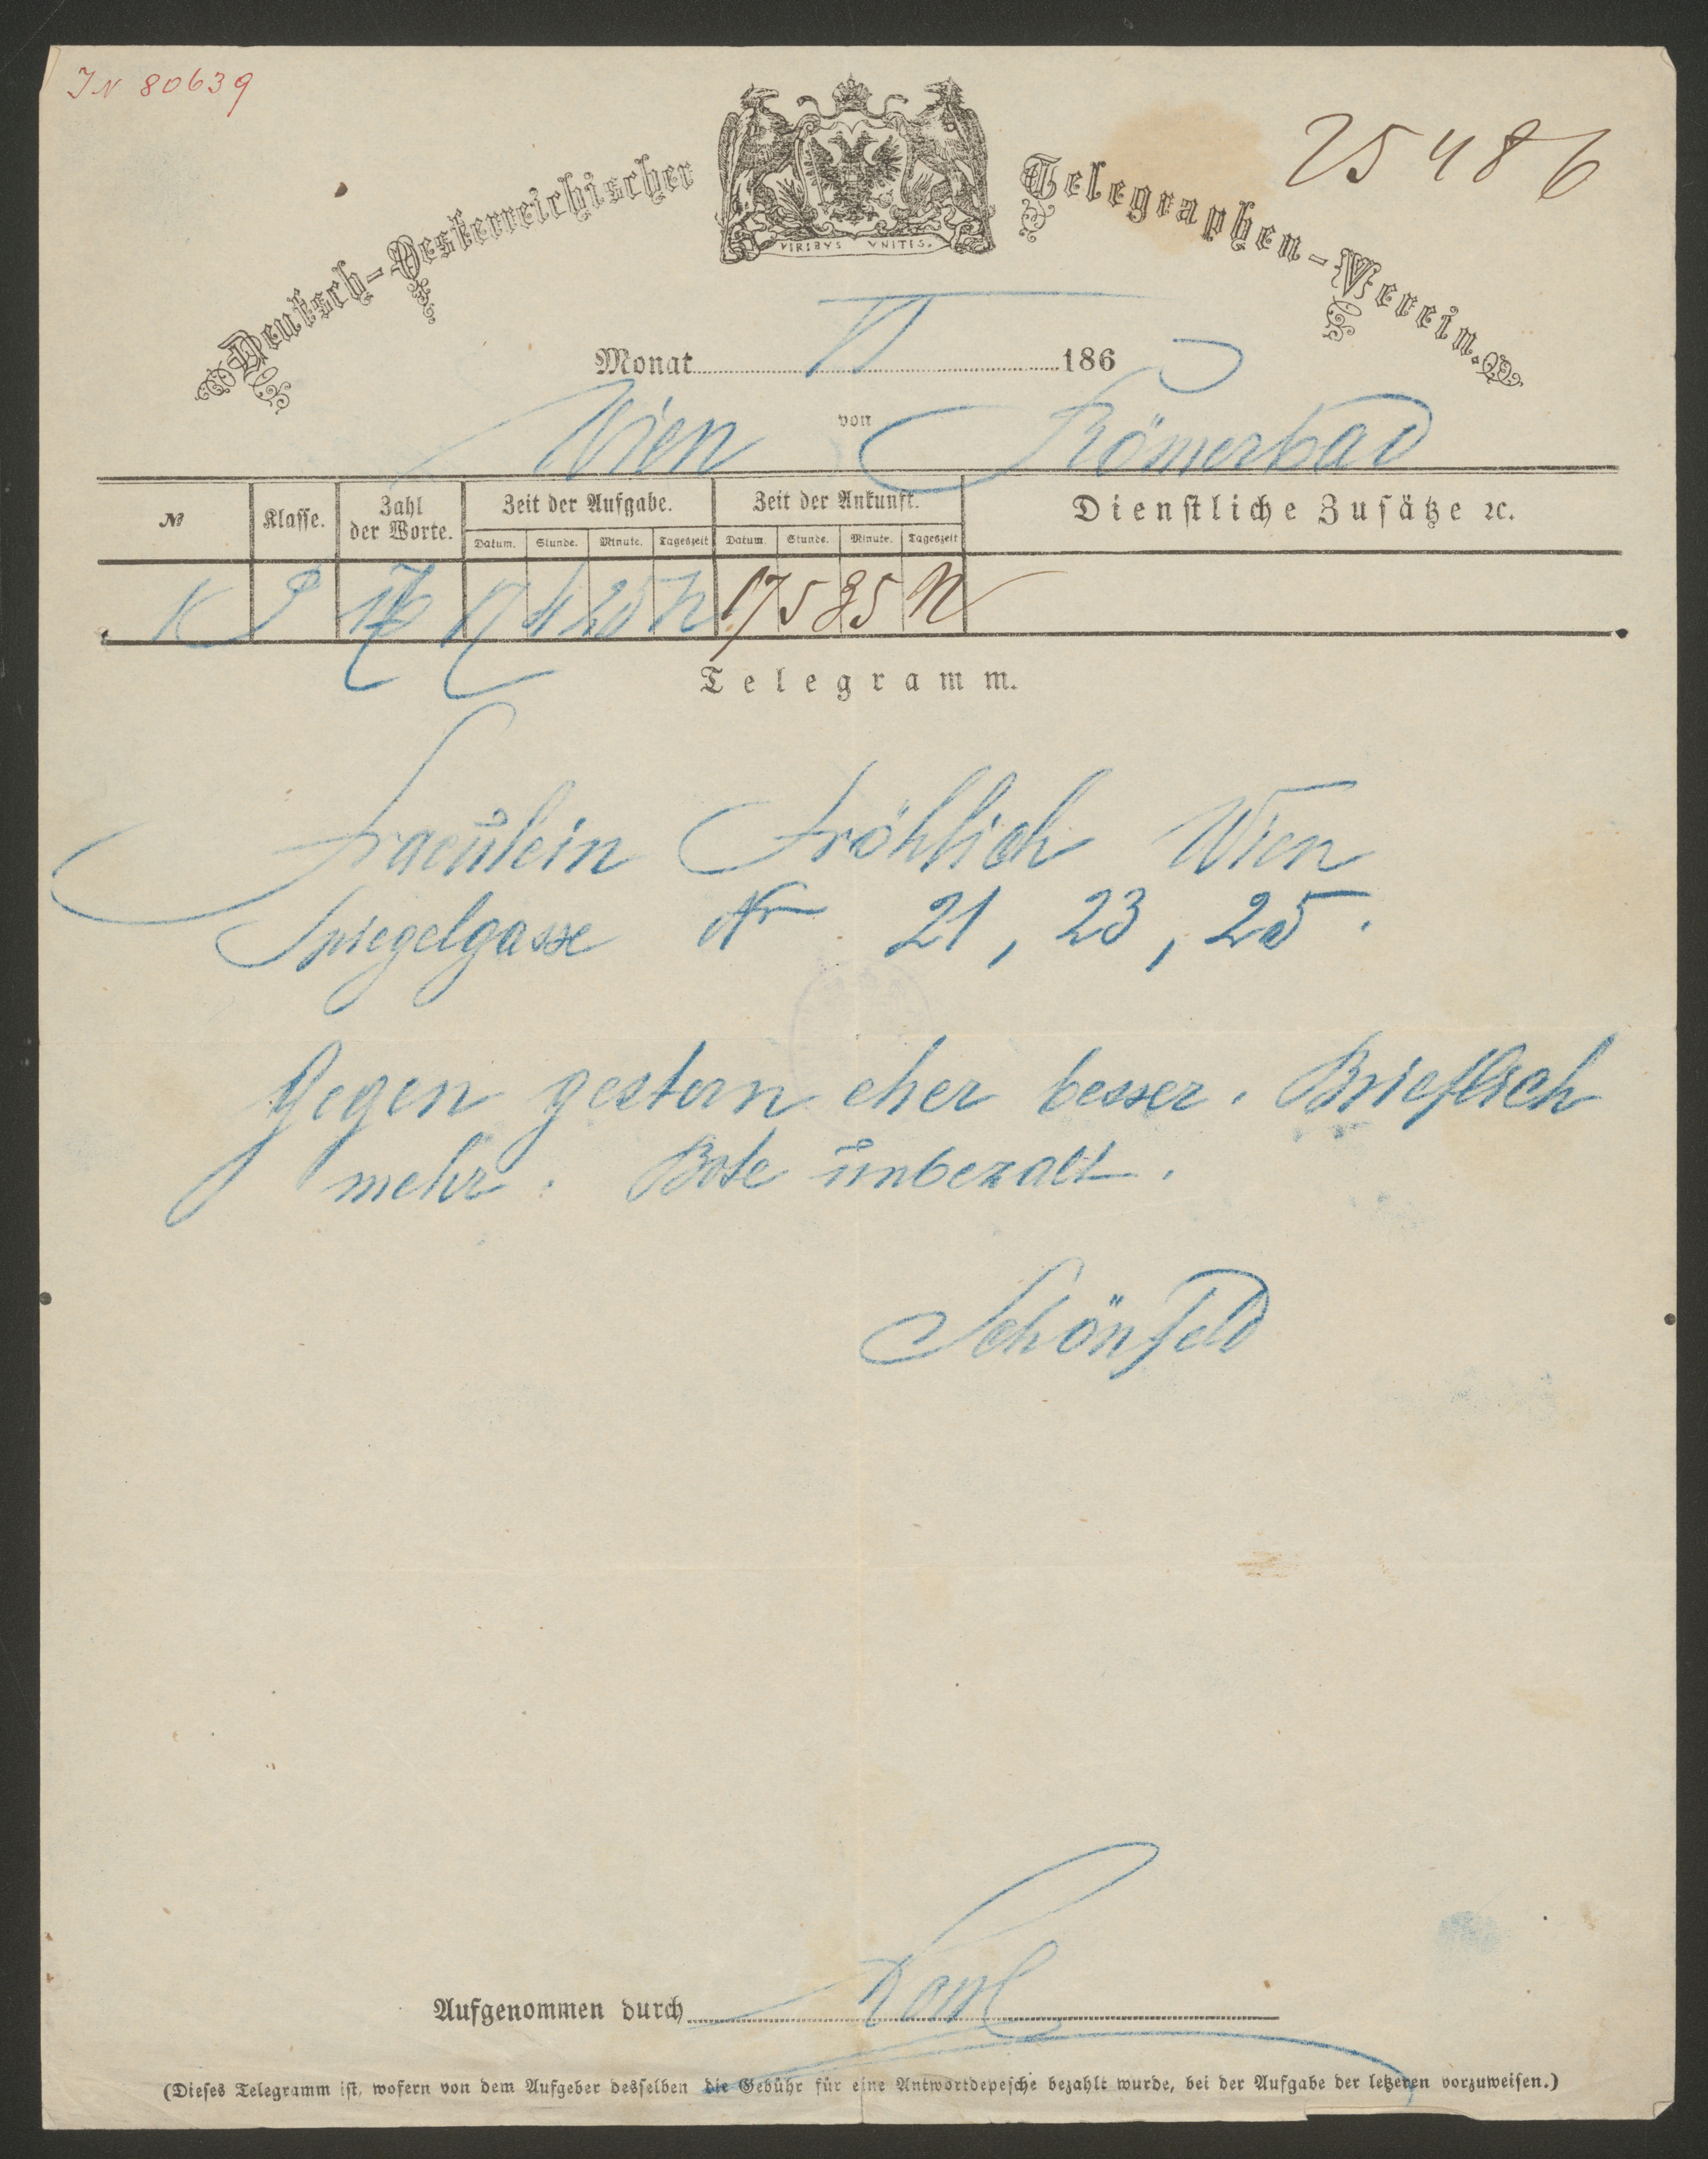 IN 80639
25486
Deutsch-Oesterreichischer Telegraphen-Verein.
VIRIBVS VNITIS.
Monat VI 186
Wien von Römerbad
№ Klasse. Zahl der Worte. Zeit der Aufgabe. Zeit der Ankunft. Dienstliche Zusätze ꝛc.
Datum. Stunde. Minute. Tageszeit Datum. Stunde. Minute. Tageszeit
17 4 25 N 17 5 35 N
Telegramm.
Fraeulein Fröhlich Wien
Spiegelgasse Nr 21, 23, 25.
Gegen gestern eher besser. Brieflich
mehr. Bote unbezalt.
Schönfeld
Aufgenommen durch
(Dieses Telegramm ist, wofern von dem Aufgeber desselben die Gebühr für eine Antwortdepesche bezahlt wurde, bei der Aufgabe der letzeren vorzuweisen.)